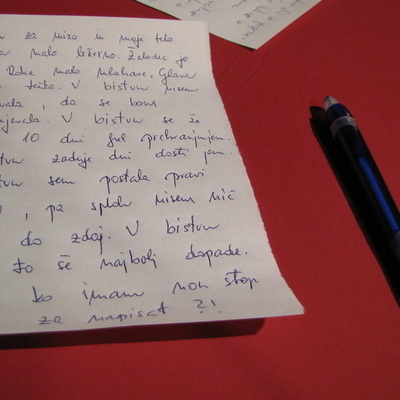 za mizo in moje telo
malo ležerno. Želodec je
Roke malo mlahave, Glava
težka. V bistvu nisem
, da se bom
V bistvu se že
10 dni ful prehranjujem.
zadnje dni dosti jem.
sem postala pravi
, pa sploh nisem nič
do zdaj. V bistvu
to še najbolj dopade.
ko imam non stop
za napisat ?!